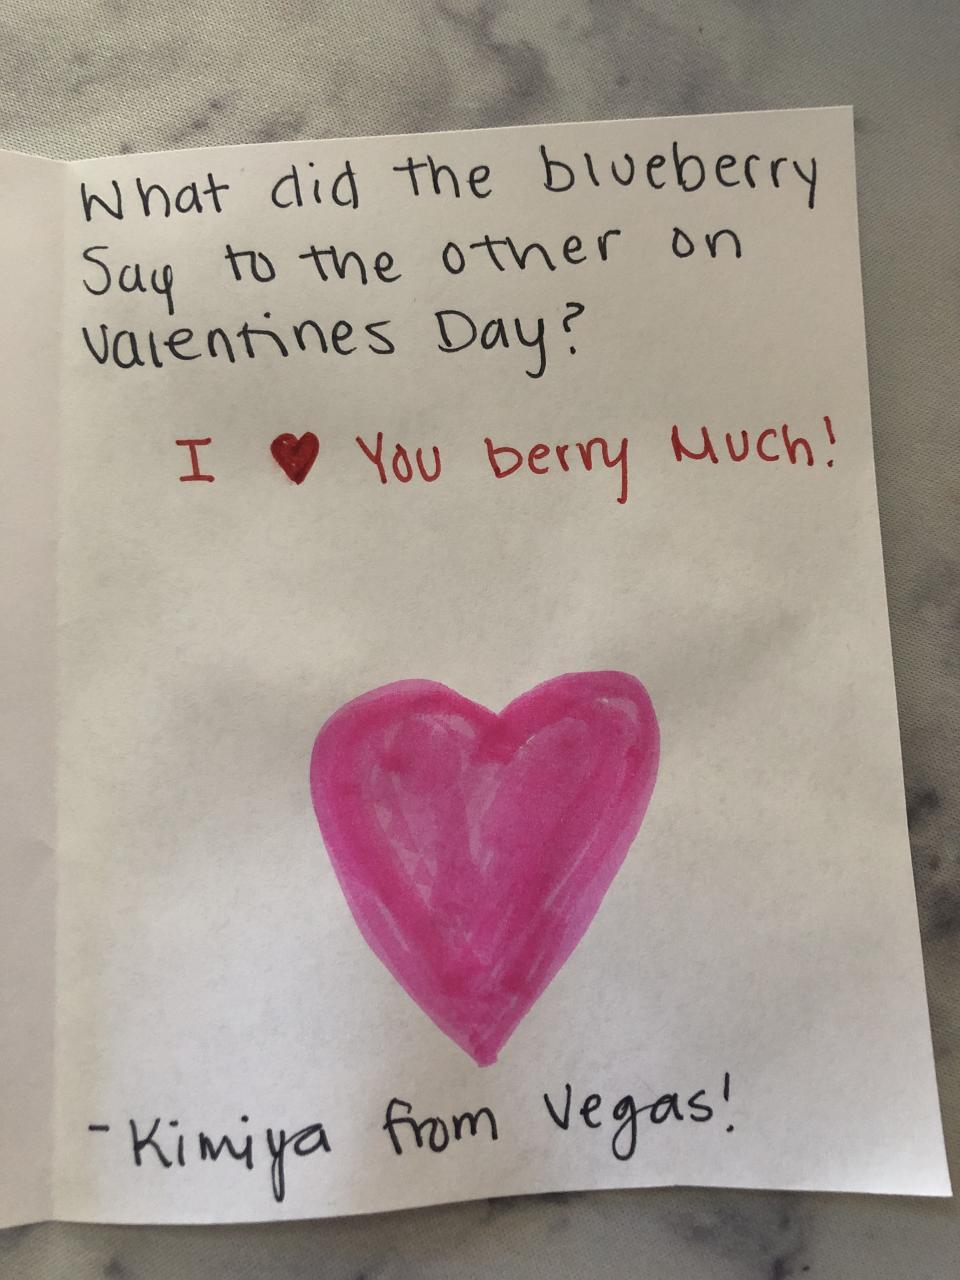 What did the blueberry
Say to the other on
Valentines Day?
I ♥ You berry Much!
- Kimiya from Vegas!